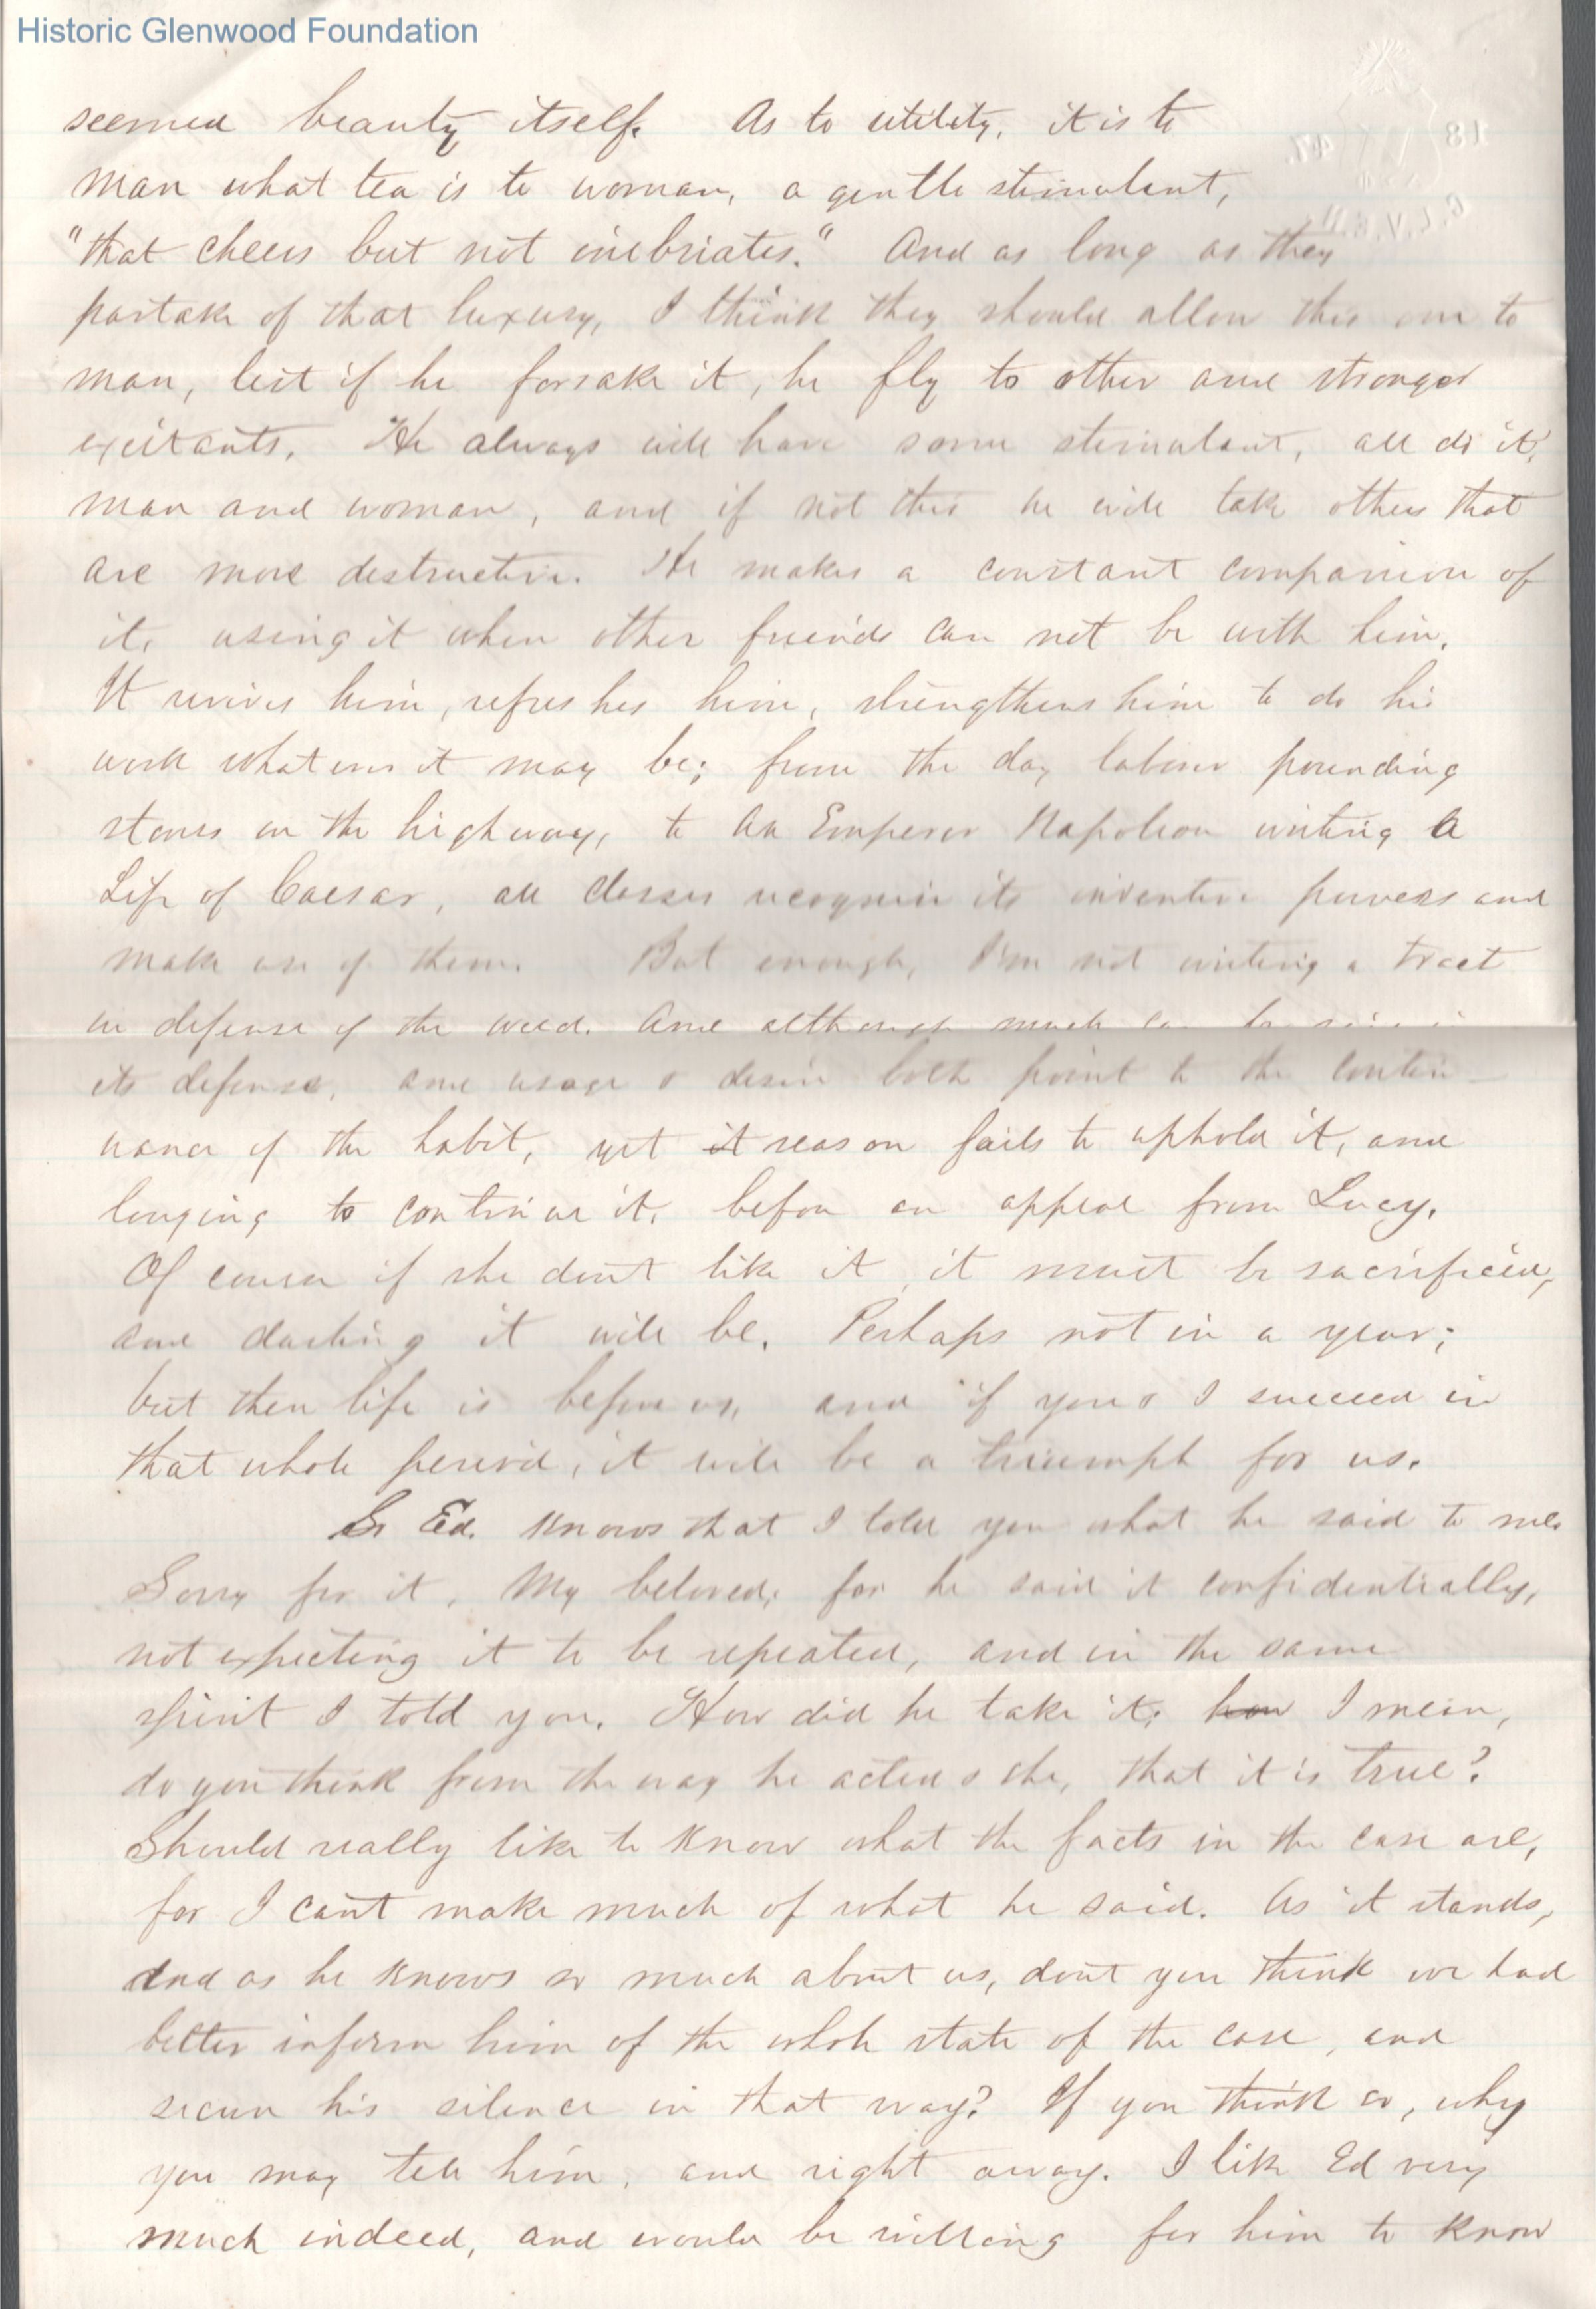 Historic Glenwood Foundation
seemed beauty itself. As to utility, it is to
man what tea is to woman, a gentle stimulant,
"that cheers but not inebriates." And as long as they
partake of that luxury, I think they should allow this one to
man, lest if he forsake it, he fly to other and stronger
excitants. He always will have some stimulant, all do it,
man and woman, and if not this he will take others that
are more destructive. He makes a constant companion of
it, using it when other friends can not be with him.
It revives him, refreshes him, strengthens him to do his
work whatever it may be; from the day labourer pounding
stones on the highway, to an Emperor Napoleon writing a
Life of Caesar, all classes recognise its inventive powers and
make use of them. But enough, I'm not writing a tract
in defense of the weed. And although much can be said in
its defense, and usage & desire both point to the contin-
uance of the habit, yet it reason fails to uphold it, and
longing to continue it, before an appeal from Lucy.
Of course if she dont like it, it must be sacrificed,
and darling it will be. Perhaps not in a year;
but then life is before us, and if you & I succeed in
that whole period, it will be a triumph for us.
So Ed. knows that I told you what he said to me.
Sorry for it, My beloved, for he said it confidentially,
not expecting it to be repeated, and in the same
spirit I told you. How did he take it; how I mean,
do you think from the way he acted & she, that it is true?
Should really like to know what the facts in the case are,
for I cant make much of what he said. As it stands,
and as he knows so much about us, dont you think we had
better inform him of the whole state of the case, and
secure his silence in that way? If you think so, why
you may tell him, and right away. I like Ed very
much indeed, and would be willing for him to know